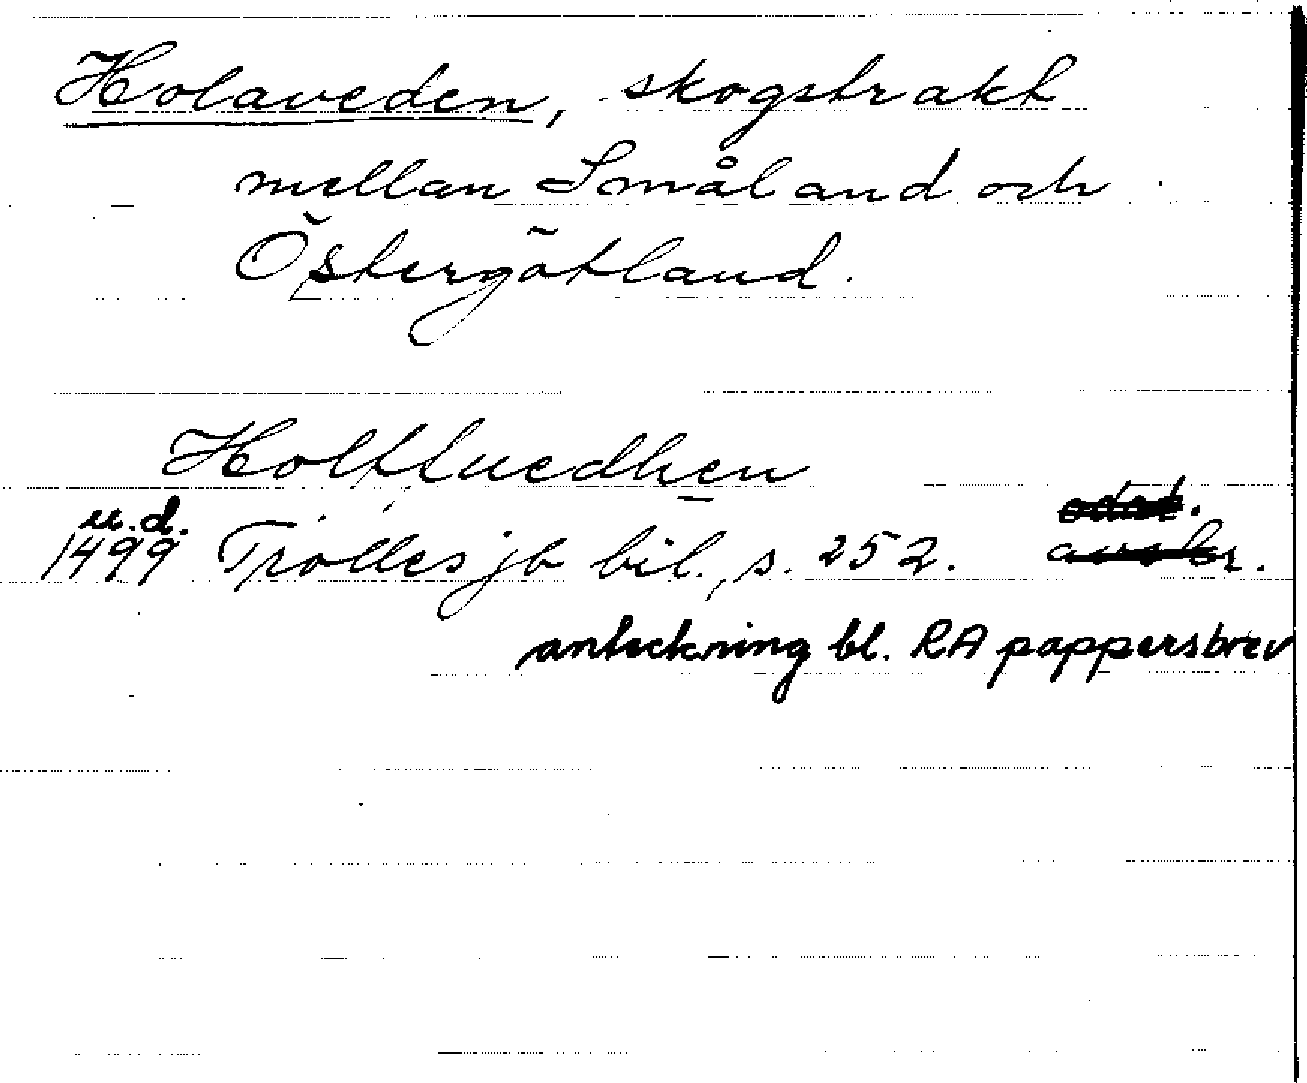 Holaveden, skogstrakt
mellan Småland och
Östergötland.
Holttuedhen
u.d.
1499 Trolles jb bil., s. 252.
anteckning bl. RA pappersbrev